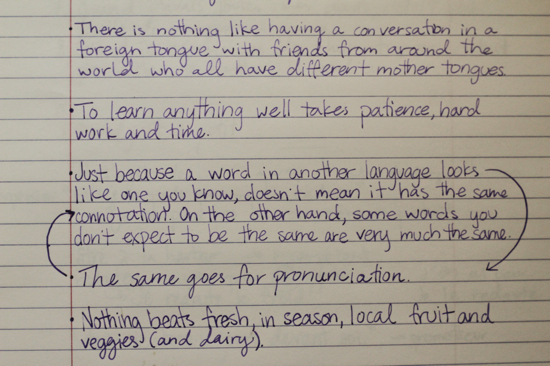 • There is nothing like having a conversation in a
foreign tongue with friends from around the
world who all have different mother tongues.
• To learn anything well takes patience, hard
work and time.
• Just because a word in another language looks
like one you know, doesn't mean it has the same
connotation! On the other hand, some words you
don't expect to be the same are very much the same.
• The same goes for pronunciation.
• Nothing beats fresh, in season, local fruit and
veggies (and dairy!).